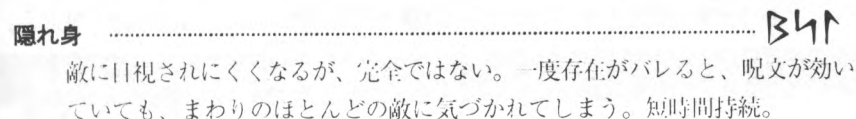 隠れ身 ᛒᛋᛚ
敵に目視されにくくなるが、完全ではない。一度存在がバレると、呪文が効い
ていても、まわりのほとんどの敵に気づかれてしまう。短時間持続。